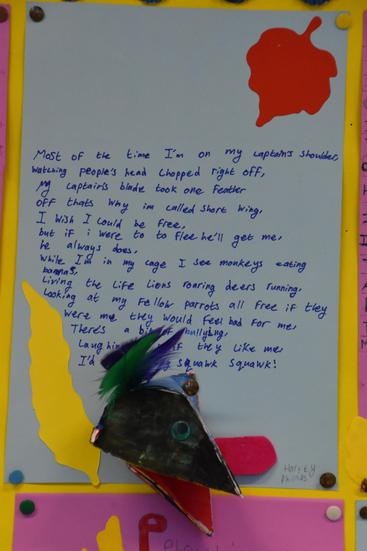 Most of the time I'm on my captain's shoulder,
watching people's head chopped right off,
My captain's blade took one feather
off thats why im called short wing,
I wish I could be free,
but if i were to to flee he'll get me,
he always does,
while I'm in my cage I see monkeys eating
Living the life Lions roaring deers running,
Looking at my fellow parrots all free if they
were me they would feel bad for me,
There's a bit of bullying,
if they like me,
I'd squawk squawk!
Harvey